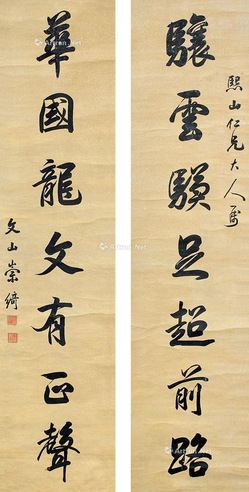 熙山仁兄大人屬
驤雲騄足超前路
華國龍文有正聲
文山崇綺